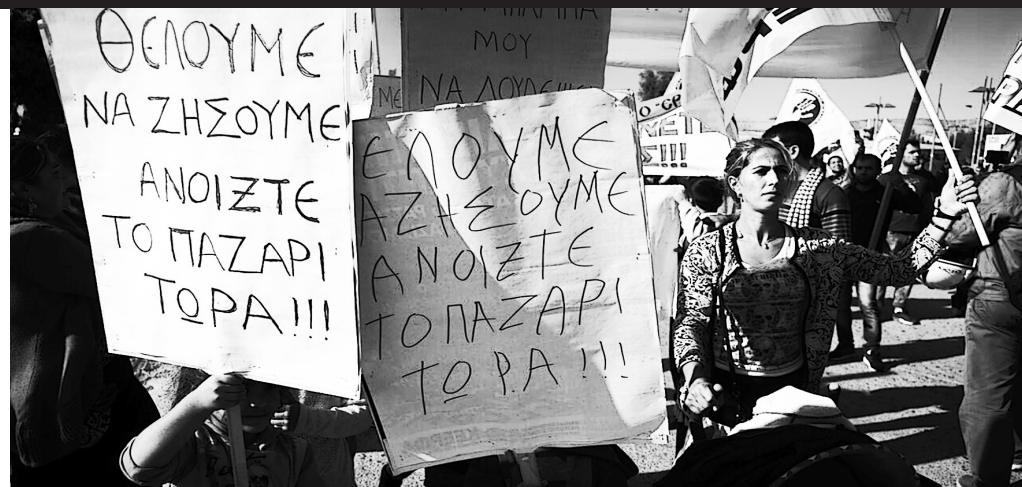 ΜΟΥ
ΝΑ
ΘΕΛΟΥΜΕ
ΝΑ ΖΗΣΟΥΜΕ
ΑΝΟΙΞΤΕ
ΤΟ ΠΑΖΑΡΙ
ΤΩΡΑ!!!
ΕΛΟΥΜΕ
ΑΖΗΣΟΥΜΕ
ΑΝΟΙΞΤΕ
ΤΟ ΠΑΖΑΡΙ
ΤΩΡΑ!!!